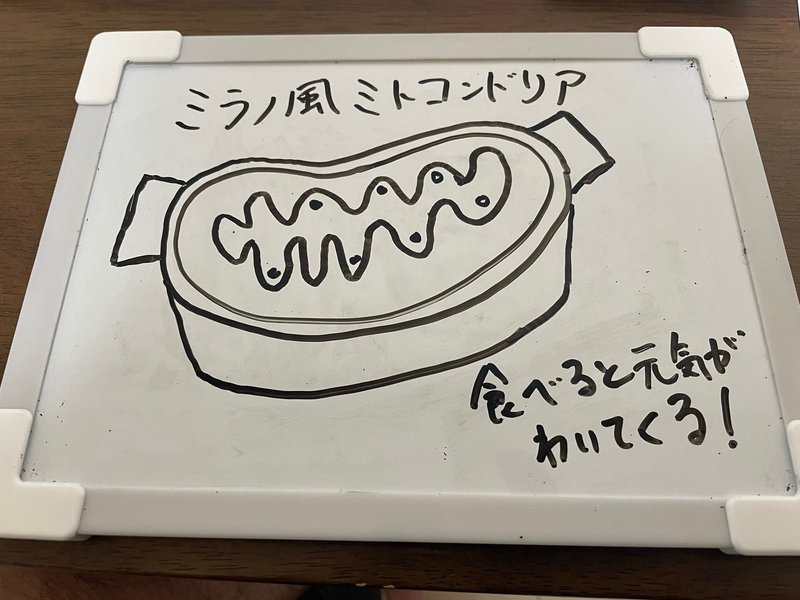 ミラノ風ミトコンドリア
食べると元気が
わいてくる!